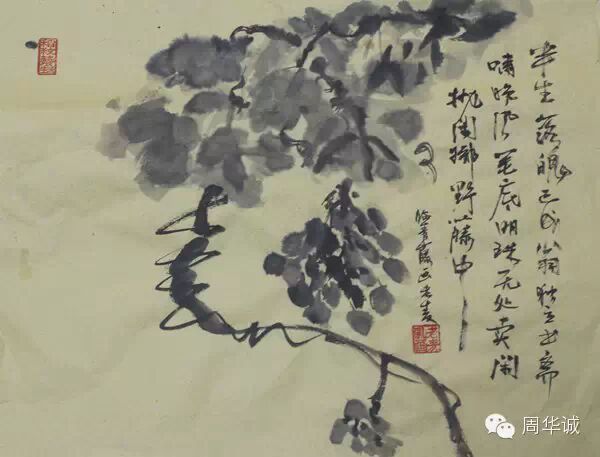 半生落魄已成翁独立书斋
啸晚风笔底明珠无处卖闲
抛闲掷野藤中
临青藤画老麦
周华诚